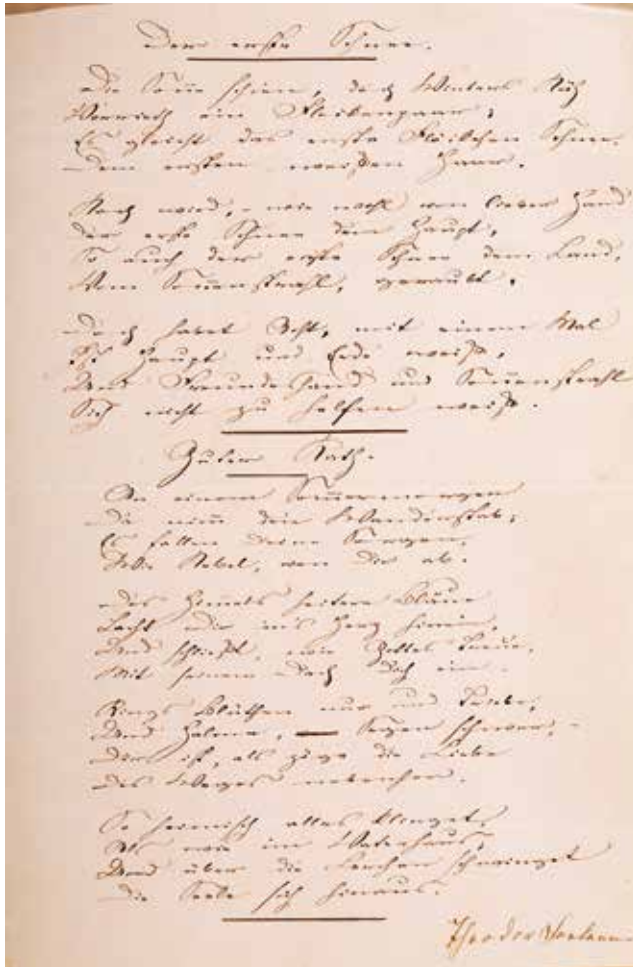 Der erste Schnee.
Die Sonne schien, doch Winters Näh
Verrieth ein Flockenpaar;
Es gleicht das erste Flöckchen Schnee
Dem ersten weißen Haar.
Noch wird, – wie wohl von lieber Hand
Der erste Schnee dem Haupt,
So auch der erste Schnee dem Land,
Vom Sonnenstrahl, geraubt.
Doch habet Acht, mit einem Mal
Ist Haupt und Erde weiß,
Und Freundes Hand und Sonnenstrahl
Sich nicht zu helfen weiß.
Guter Rath.
An einem Sommermorgen
Da nimm den Wanderstab;
Es fallen deine Sorgen,
Wie Nebel, von dir ab.
Des Himmels heitere Bläue
Lacht dir in's Herz hinein,
Und schließt, wie Gottes Treue,
Mit seinem Dach dich ein.
Rings Blüthen nur und Triebe,
Und Halme, — Segen schwer, –
Dir ist, als zöge die Liebe
Des Weges nebenher.
So heimisch alles klinget,
Als wie im Vaterhaus,
Und über die Lerchen schwinget
Die Seele sich hinaus.
Theodor Fontane